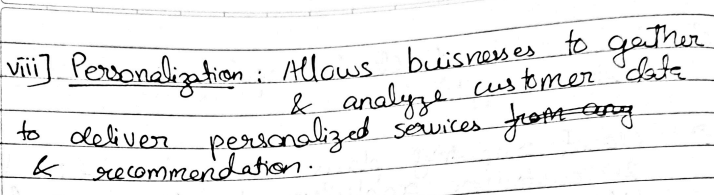 viii] Personalization : Allows buisnesses to gather
& analyze customer data
to deliver personalized services from any
& recommendation.